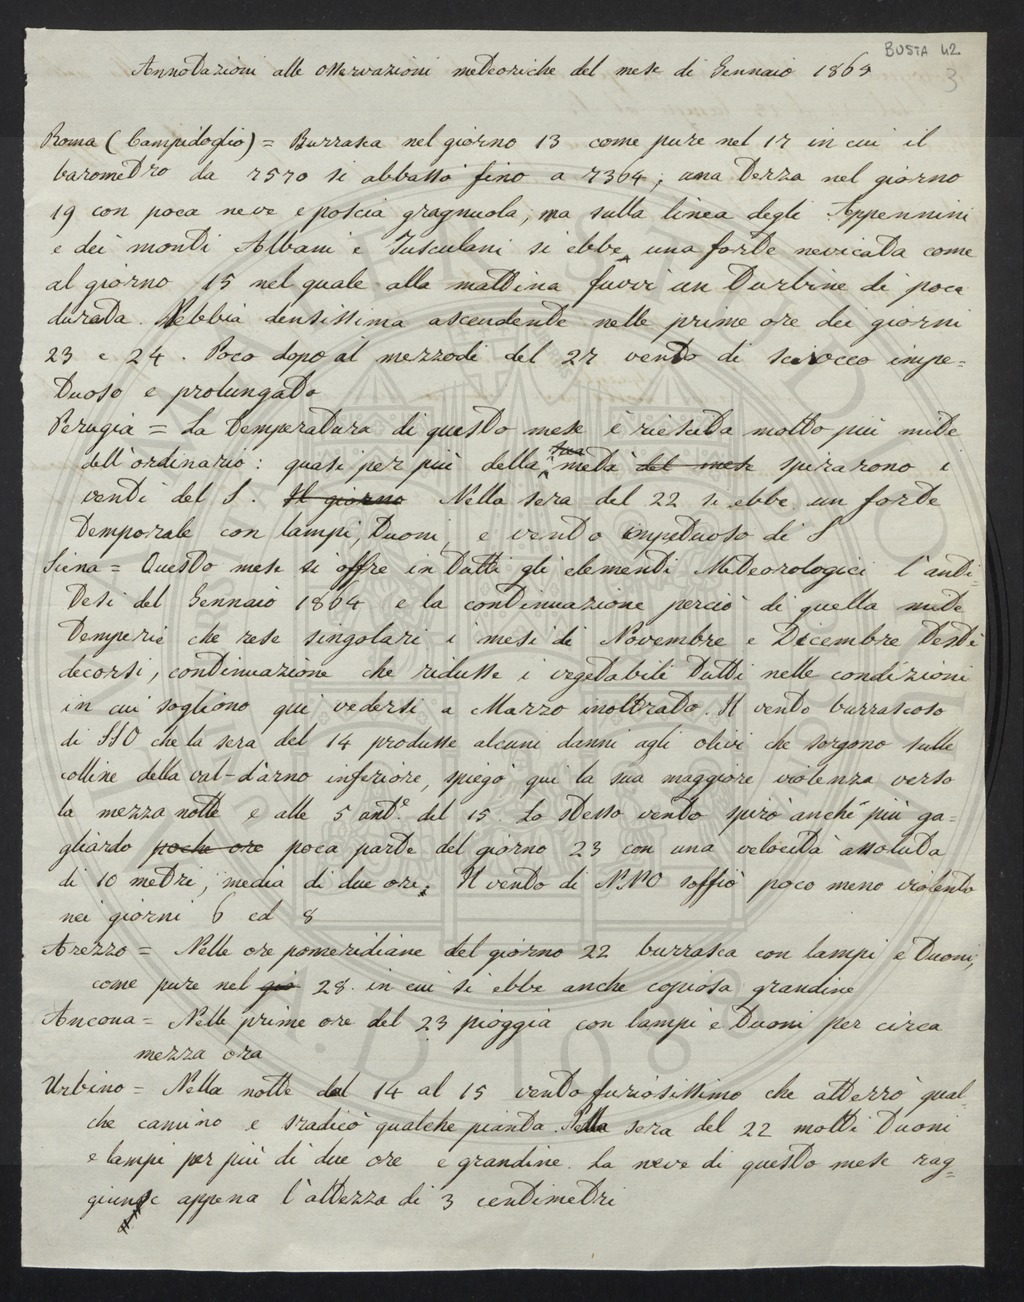 BUSTA 42
3
Annotazioni alle osservazioni meteoriche del mese di Gennaio 1865
Roma (Campidoglio) = Burrasca nel giorno 13 come pure nel 17 in cui il
barometro da 7570 si abbassò fino a 7364; una terza nel giorno
19 con poca neve e poscia gragnuola, ma sulla linea degli Appennini
e dei monti Albani e Tusculani si ebbe una forte nevicata come
al giorno 15 nel quale alla mattina fuvvi un turbine di poca
durata. Nebbia densissima ascendente nelle prime ore dei giorni
23 e 24. Poco dopo al mezzodì del 27 vento di scirocco impe=
tuoso e prolungato
Perugia = La temperatura di questo mese è riescita molto più mite
dell'ordinario: quasi per più della sua metà del mese spirarono i
venti del S. Il giorno Nella sera del 22 si ebbe un forte
temporale con lampi, tuoni, e vento impetuoso di S
Siena = Questo mese si offre in tutti gli elementi Meteorologici l'anti=
tesi del Gennaio 1864 e la continuazione perciò di quella mite
temperie che rese singolari i mesi di Novembre e Dicembre testè
decorsi, continuazione che ridusse i vegetabili tutti nelle condizioni
in cui sogliono qui vedersi a Marzo inoltrato. Il vento burrascoso
di SSO che la sera del 14 produsse alcuni danni agli olivi che sorgono sulle
colline della val-d'arno inferiore, spiegò qui la sua maggiore violenza verso
la mezza notte e alle 5 ant.e del 15. Lo stesso vento spirò anche più ga=
gliardo poche ore poca parte del giorno 23 con una velocità assoluta
di 10 metri, media di due ore. Il vento di NNO soffiò poco meno violento
nei giorni 6 ed 8
Arezzo = Nelle ore pomeridiane del giorno 22 burrasca con lampi e tuoni,
come pure nel gio 28 in cui si ebbe anche copiosa grandine
Ancona = Nelle prime ore del 23 pioggia con lampi e tuoni per circa
mezza ora
Urbino = Nella notte dal 14 al 15 vento furiosissimo che atterrò qual=
che camino e sradicò qualche pianta. Nella sera del 22 molti tuoni
e lampi per più di due ore e grandine. La neve di questo mese rag=
giunse appena l'altezza di 3 centimetri